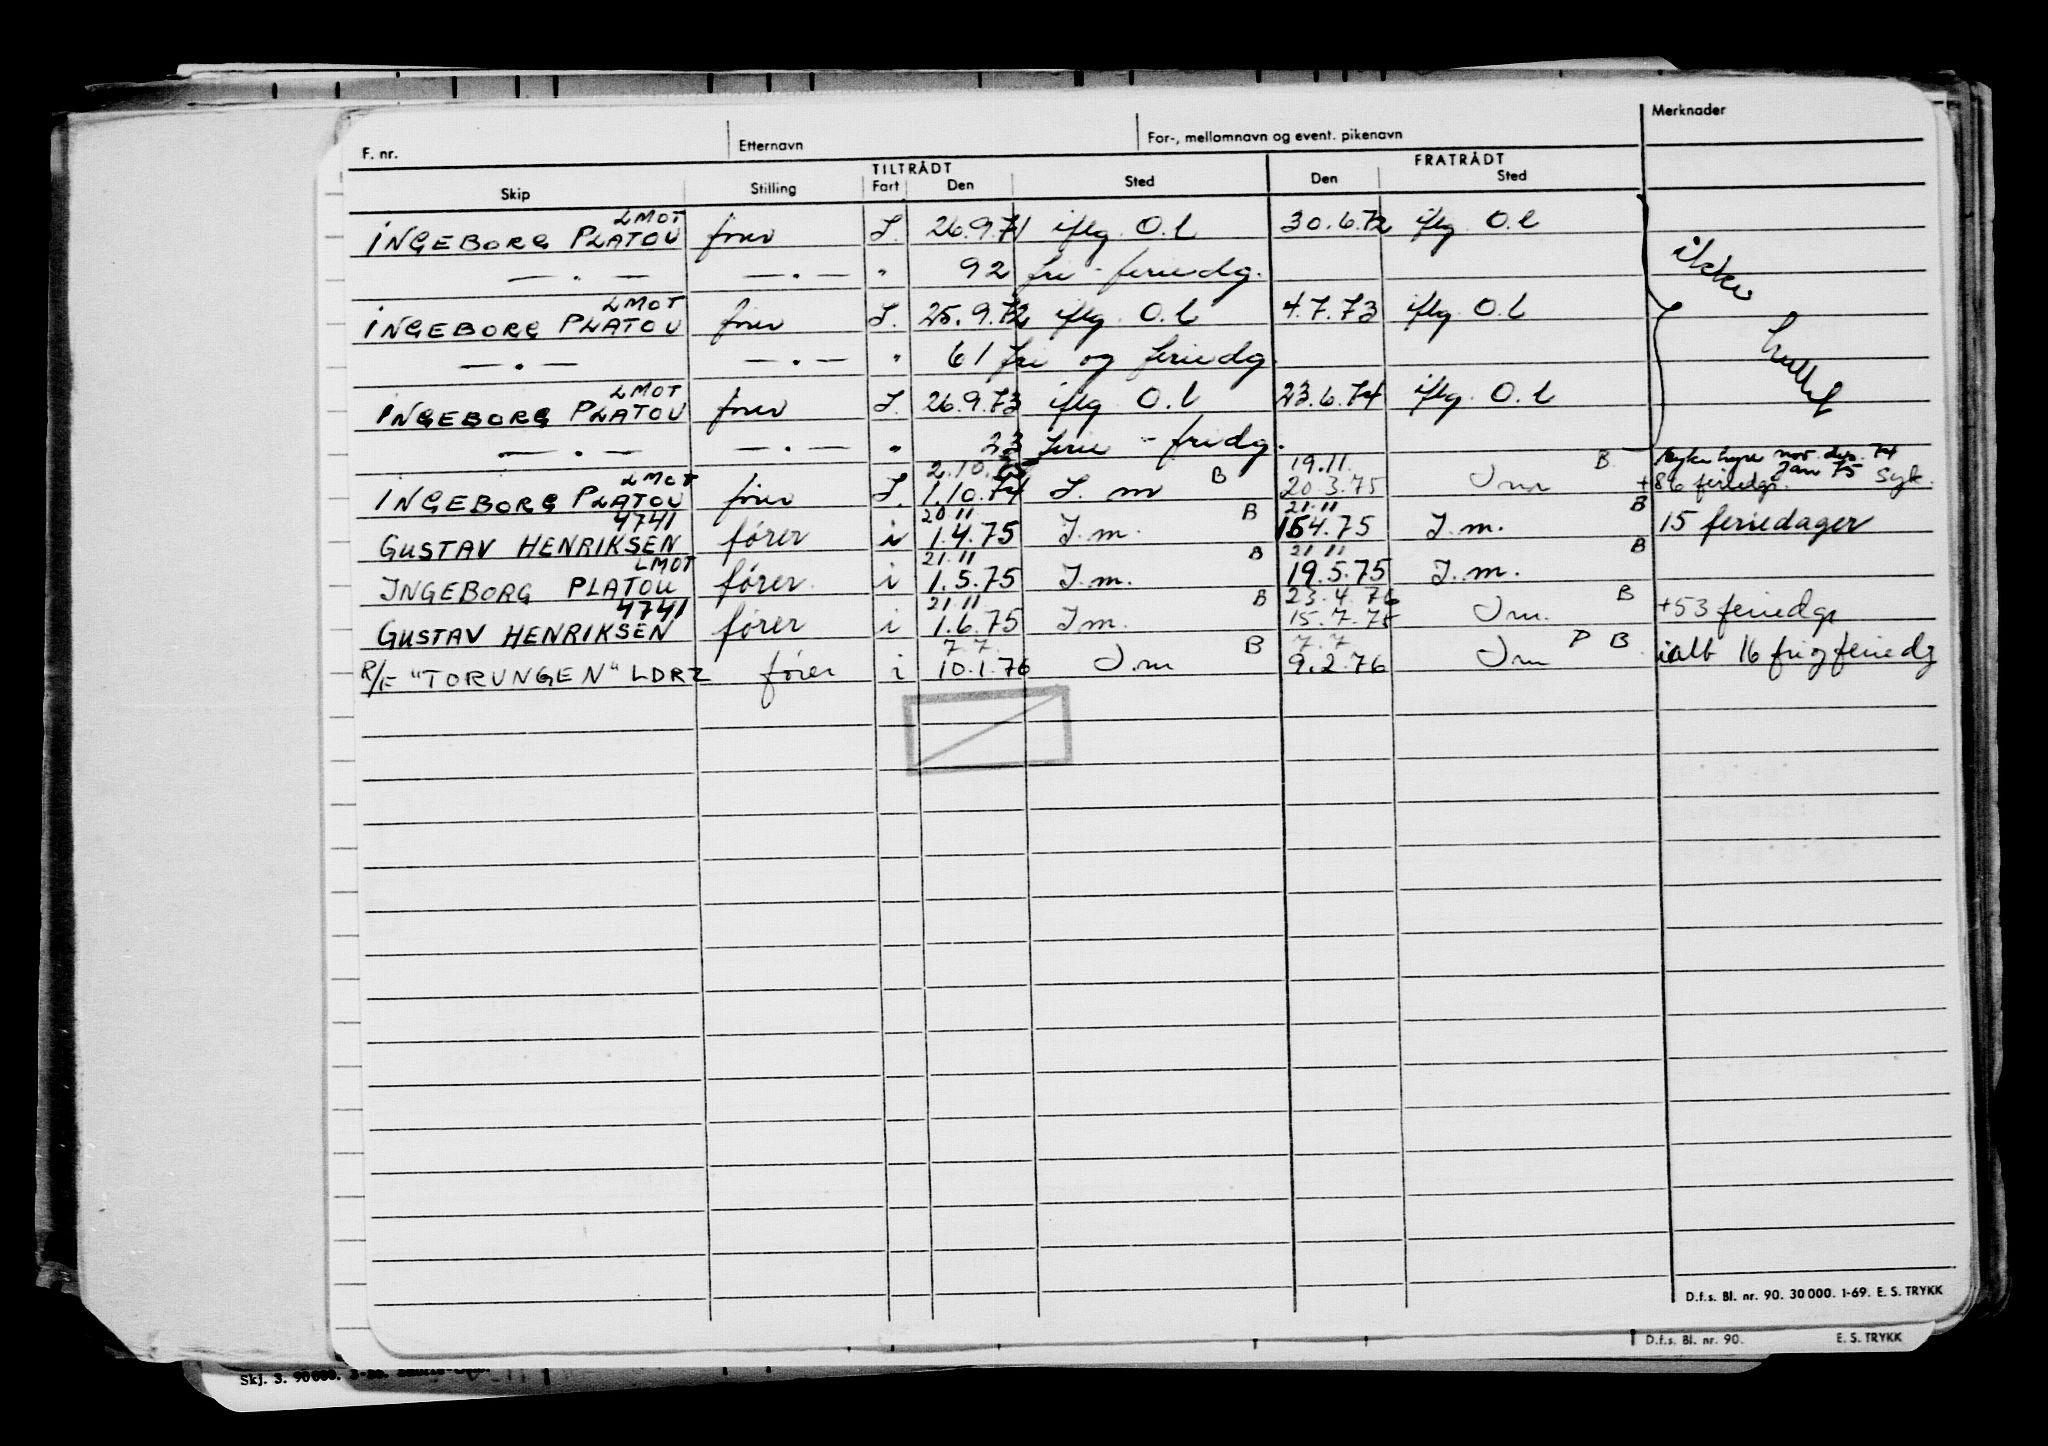 F. nr. Etternavn For-, mellomnavn og event. pikenavn Merknader
TILTRÅDT FRATRÅDT
Skip Stilling Fart Den Sted Den Sted
LMOT
INGEBORG PLATOU fører I. 26.9.71 iflg. O.l 30.6.72 iflg O.l
— . — — . — " 92 fri - feriedg.
LMOT
INGEBORG PLATOU fører I. 25.9.72 iflg. O.l 4.7.73 iflg O.l
— . — — . — " 61 fri og feriedg.
LMOT
INGEBORG PLATOU fører I. 26.9.73 iflg O.l 23.6.74 iflg O.l
— . — — . — " 23 ferie - fridg.
ikke
hullet
LMOT 2.10. B 19.11. B nov. des. 74
INGEBORG PLATOU fører I. 1.10.74 I. m 20.3.75 I m +86 feriedgr. Jan 75 Syk.
4741 20 11 B 21.11 B
GUSTAV HENRIKSEN fører i 1.4.75 I.m. 15.4.75 I.m. 15 feriedager
LMOT 21.11 B 21 11 B
INGEBORG PLATOU fører i 1.5.75 I.m. 19.5.75 I.m.
4741 21.11 B 23.4.76 B
GUSTAV HENRIKSEN fører i 1.6.75 I m. 15.7.75 I m. +53 feriedgr
7.7. B 7.7. P B
R/F "TORUNGEN" LDRZ fører i 10.1.76 I m 9.2.76 I m ialt 16 fri og feriedg
D.f.s. Bl. nr. 90. 30 000. 1-69. E. S. TRYKK
D.f.s. Bl. nr. 90. E. S. TRYKK
Skj. 3. 90 000.